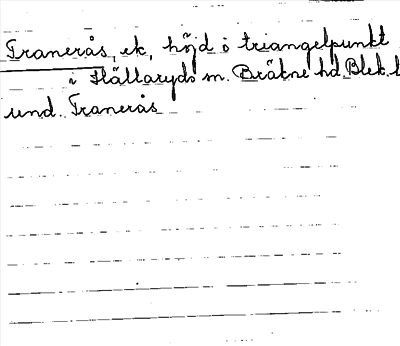 Tranerås, ek, höjd o triangelpunkt
i Hällaryds sn. Bräkne hd Blek. l
und. Tranerås